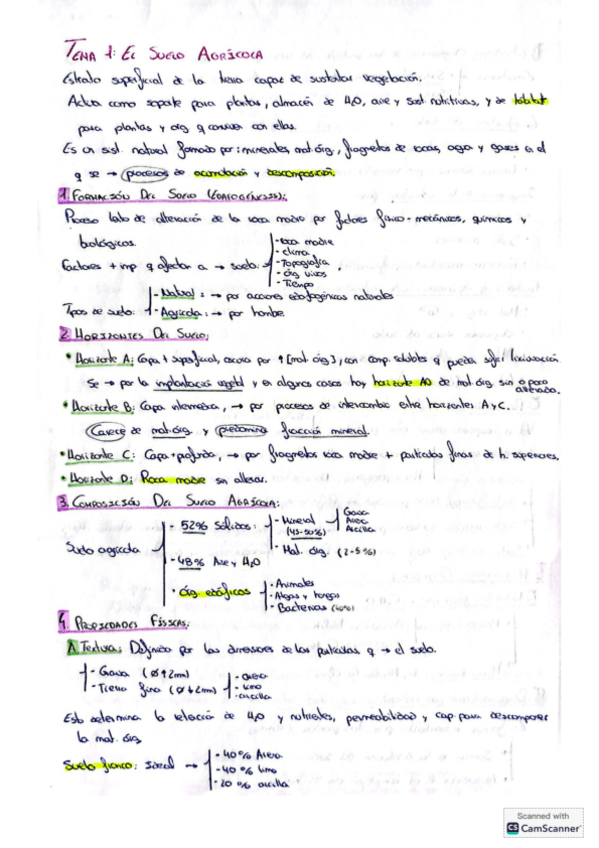 TEMA 1: EL SUELO AGRÍCOLA
Estrato superficial de la tierra capaz de sustentar vegetación.
Actúa como soporte para plantas, almacén de H2O, aire y sust. nutritivas, y de hábitat
para plantas y org q conviven con ellas.
Es un sist. natural formado por: minerales, mat. órg., fragmentos de rocas, agua y gases en el
q se → procesos de acumulación y descomposición.
1. FORMACIÓN DEL SUELO (EDAFOGÉNESIS):
Proceso lento de alteración de la roca madre por factores físico-mecánicos, químicos y
biológicos.
Factores + imp. q afectan a → suelo:
- roca madre
- clima
- Topografía
- órg vivos
- Tiempo
Tipos de suelo:
- Natural: → por acciones edafogénicas naturales
- Agrícola: → por hombre
2. HORIZONTES DEL SUELO:
• Horizonte A: Capa + superficial, oscura por ↑ [mat. órg], con comp. solubles q pueden sufrir lixiviación
Se → por la implantación vegetal y en algunos casos hay horizonte A0 de mat. órg. sin o poco
• Horizonte B: Capa intermedia, → por procesos de intercambio entre horizontes A y C.
Carece de mat. órg. y predomina fracción mineral.
• Horizonte C: Capa + profunda, → por fragmentos roca madre + partículas finas de h. superiores.
• Horizonte D: Roca madre sin alterar.
3. COMPOSICIÓN DEL SUELO AGRÍCOLA:
Suelo agrícola
- 52% Sólidos:
- Mineral (45-50%)
Grava
Arena
Arcilla
- Mat. órg. (2-5%)
- 48% Aire y H2O
• órg edáficos
- Animales
- Algas y hongos
- Bacterias
4. PROPIEDADES FÍSICAS:
A. Textura: Definida por las dimensiones de las partículas q → el suelo.
- Grava (Ø ↑ 2mm)
- Tierra fina (Ø ↓ 2mm)
- arena
- limo
- arcilla
Esto determina la retención de H2O y nutrientes, permeabilidad y cap para descomponer
la mat. órg.
Suelo franco: ideal →
- 40% Arena
- 40% limo
- 20% arcilla
Scanned with
CS CamScanner